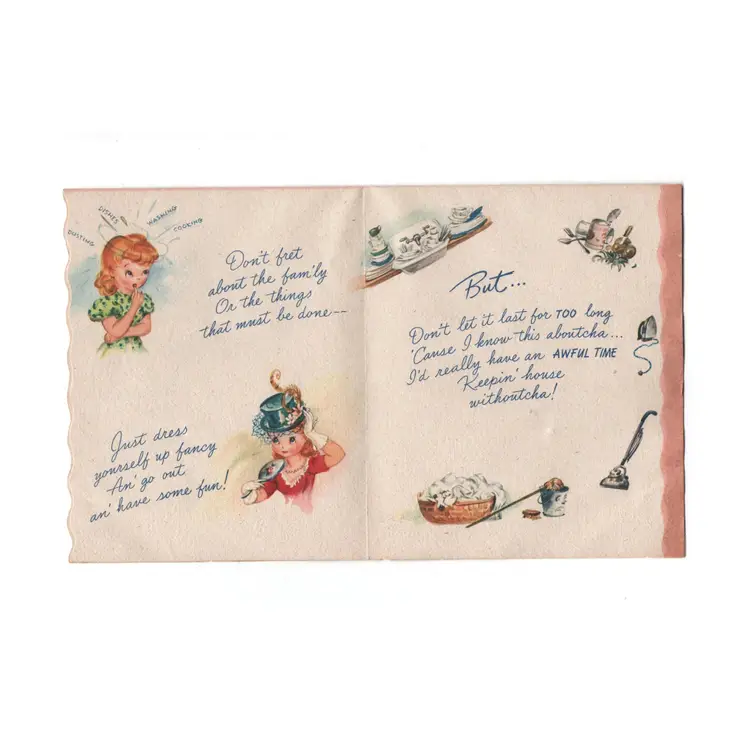 DUSTING
DISHES
WASHING
COOKING
Don't fret
about the fam'ly
Or the things
that must be done--
Just dress
yourself up fancy
An' go out
an' have some fun!
But...
Don't let it last for TOO long
'Cause I know this aboutcha...
I'd really have an AWFUL TIME
Keepin' house
withoutcha!